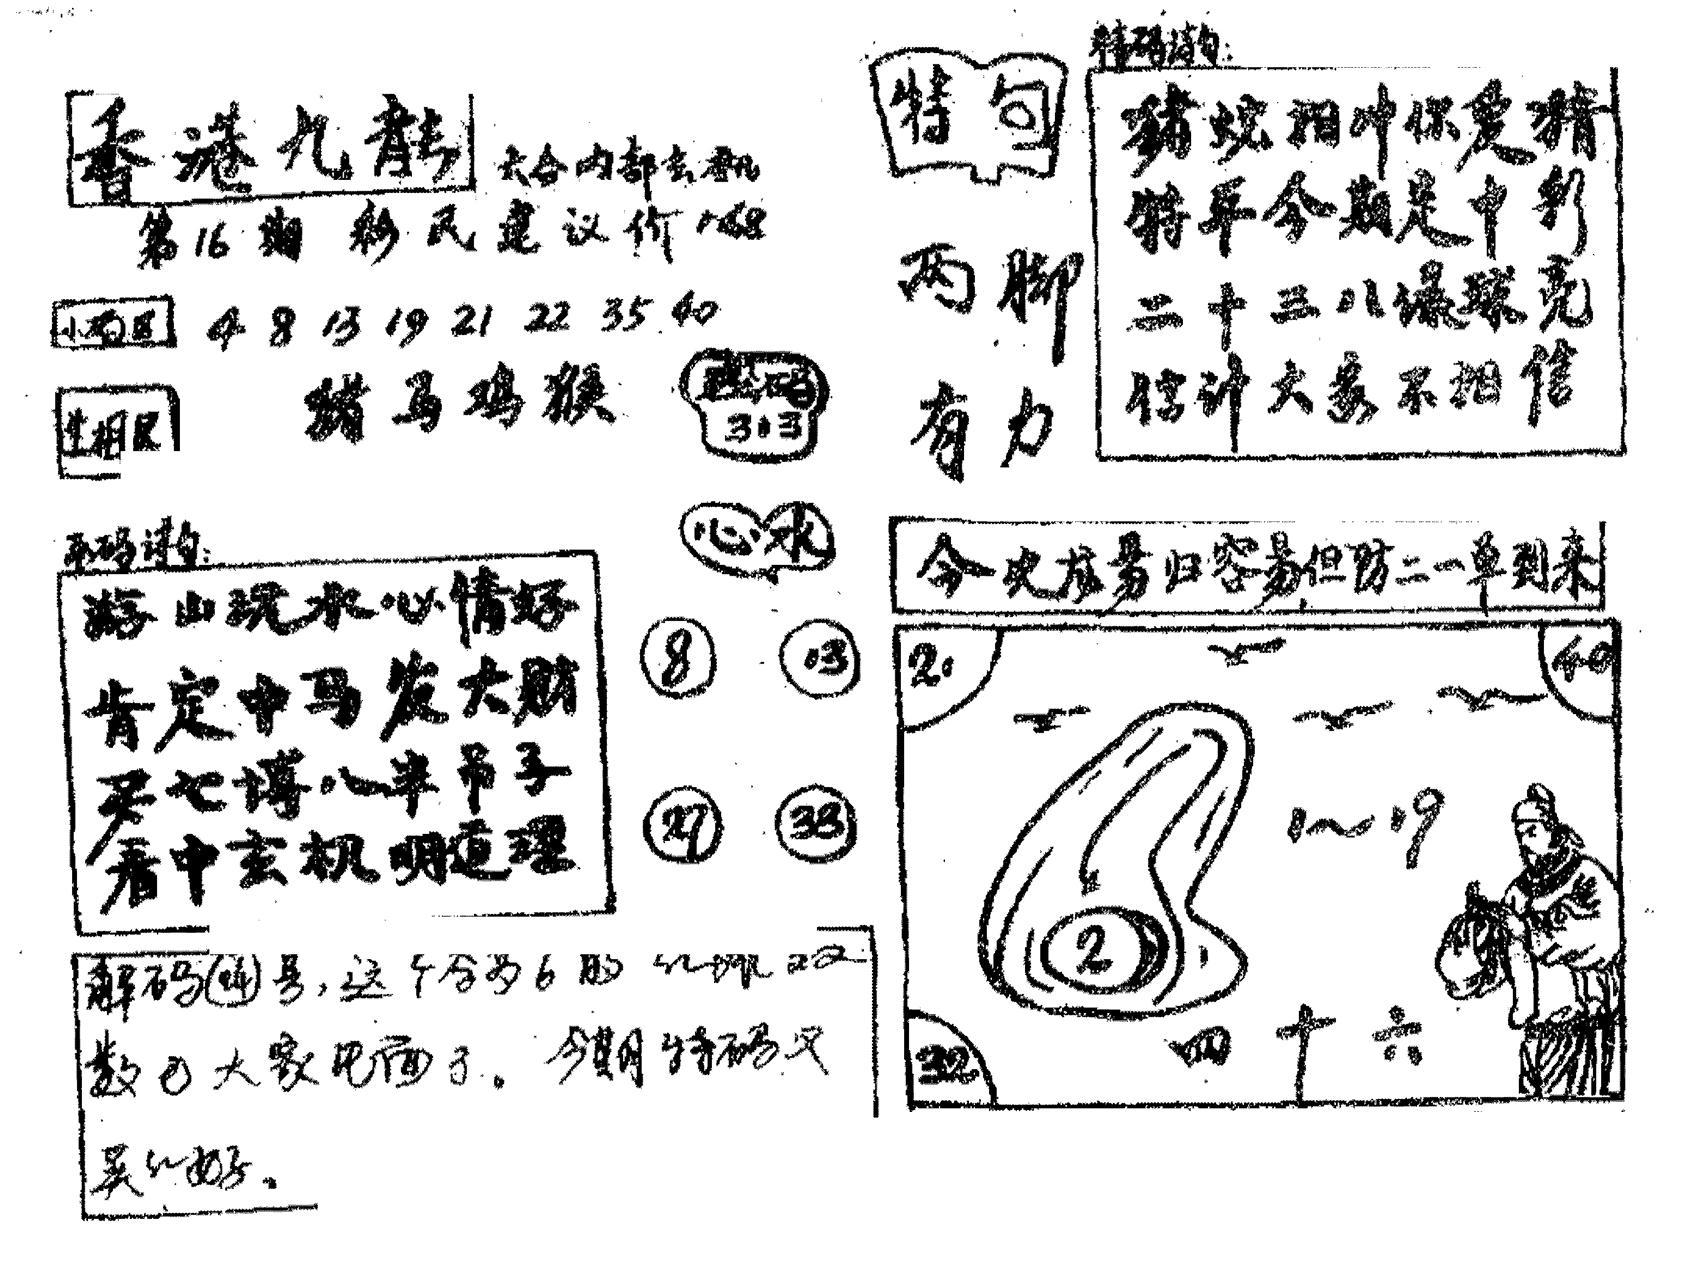 香港九龙
六合内部玄机
第16期 彩民建议价1.68
4 8 13 19 21 22 35 40
生相区
猪马鸡猴
3.3
平码诗句:
游山玩水心情好
肯定中马发大财
买七博八半吊子
看中玄机明道理
心水
8 03
27 33
数 大家见面了。今期特码又
好。
特码诗句:
特句
两脚
有力
猪蛇相冲你爱猜
特年今期足中彩
二十三八爆球亮
估计大家不相信
今次容易归容易但防二一单到来
2. 40
1~19
2
32
四十六